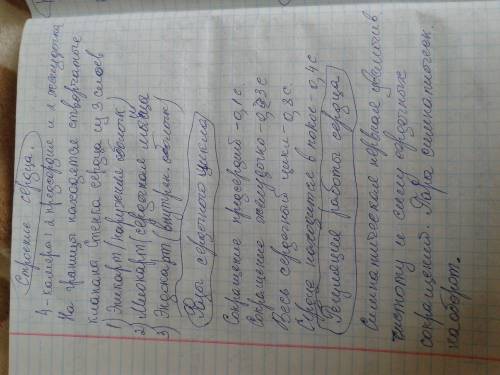 Строение сердца.
4-камеры: 2 предсердие и 2 желудочка
На границы находятся створчатые
клапана Стенка сердца из 3 слоев
1) Эпикарт (наружная оболочк)
2) Миокарт (сердечная мышца)
3) Эндокарт (внутрен. оболочк)
Фазы сердечного цикла
Сокращение предсердий - 0,1с
Сокращение желудочко - 0,3с
Весь сердечный цикл - 0,8с
Сердце находится в покое - 0,4с
Регуляция работы сердца
Симпатическая нервная
частоту и силу сердечных
сокращений. Пара симпатическ.
наоборот.